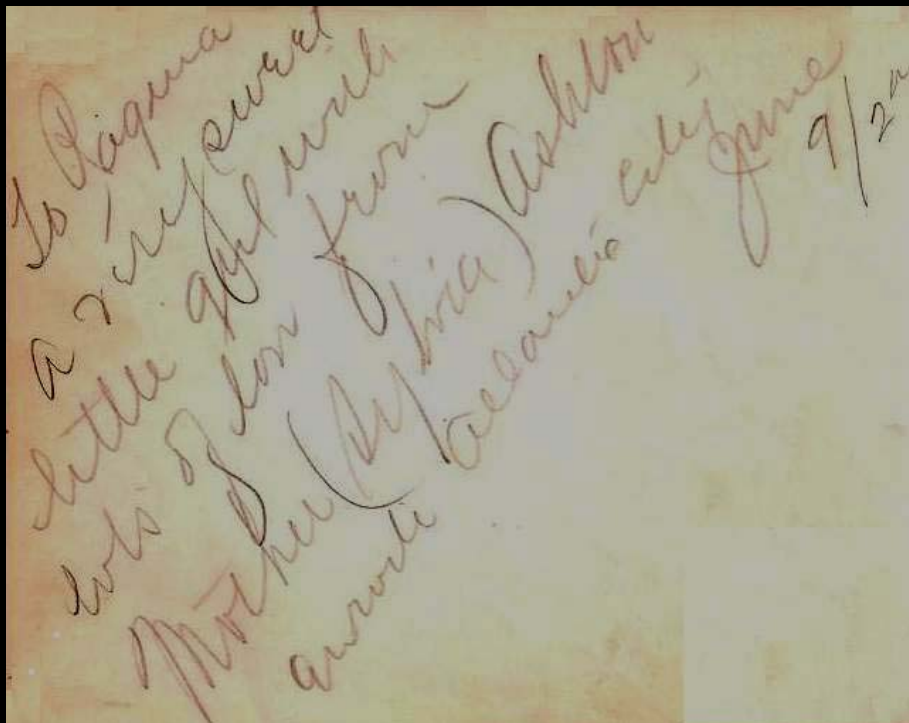 To
a very sweet
little girl with
lots of love from
Mother (Sylvia) Ashton
Atlantic City
June